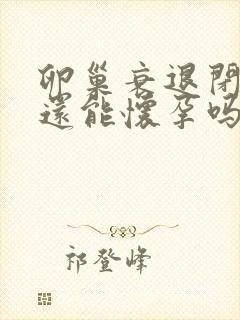 卵巢衰退閉
還能懷孕嗎
祁登峰